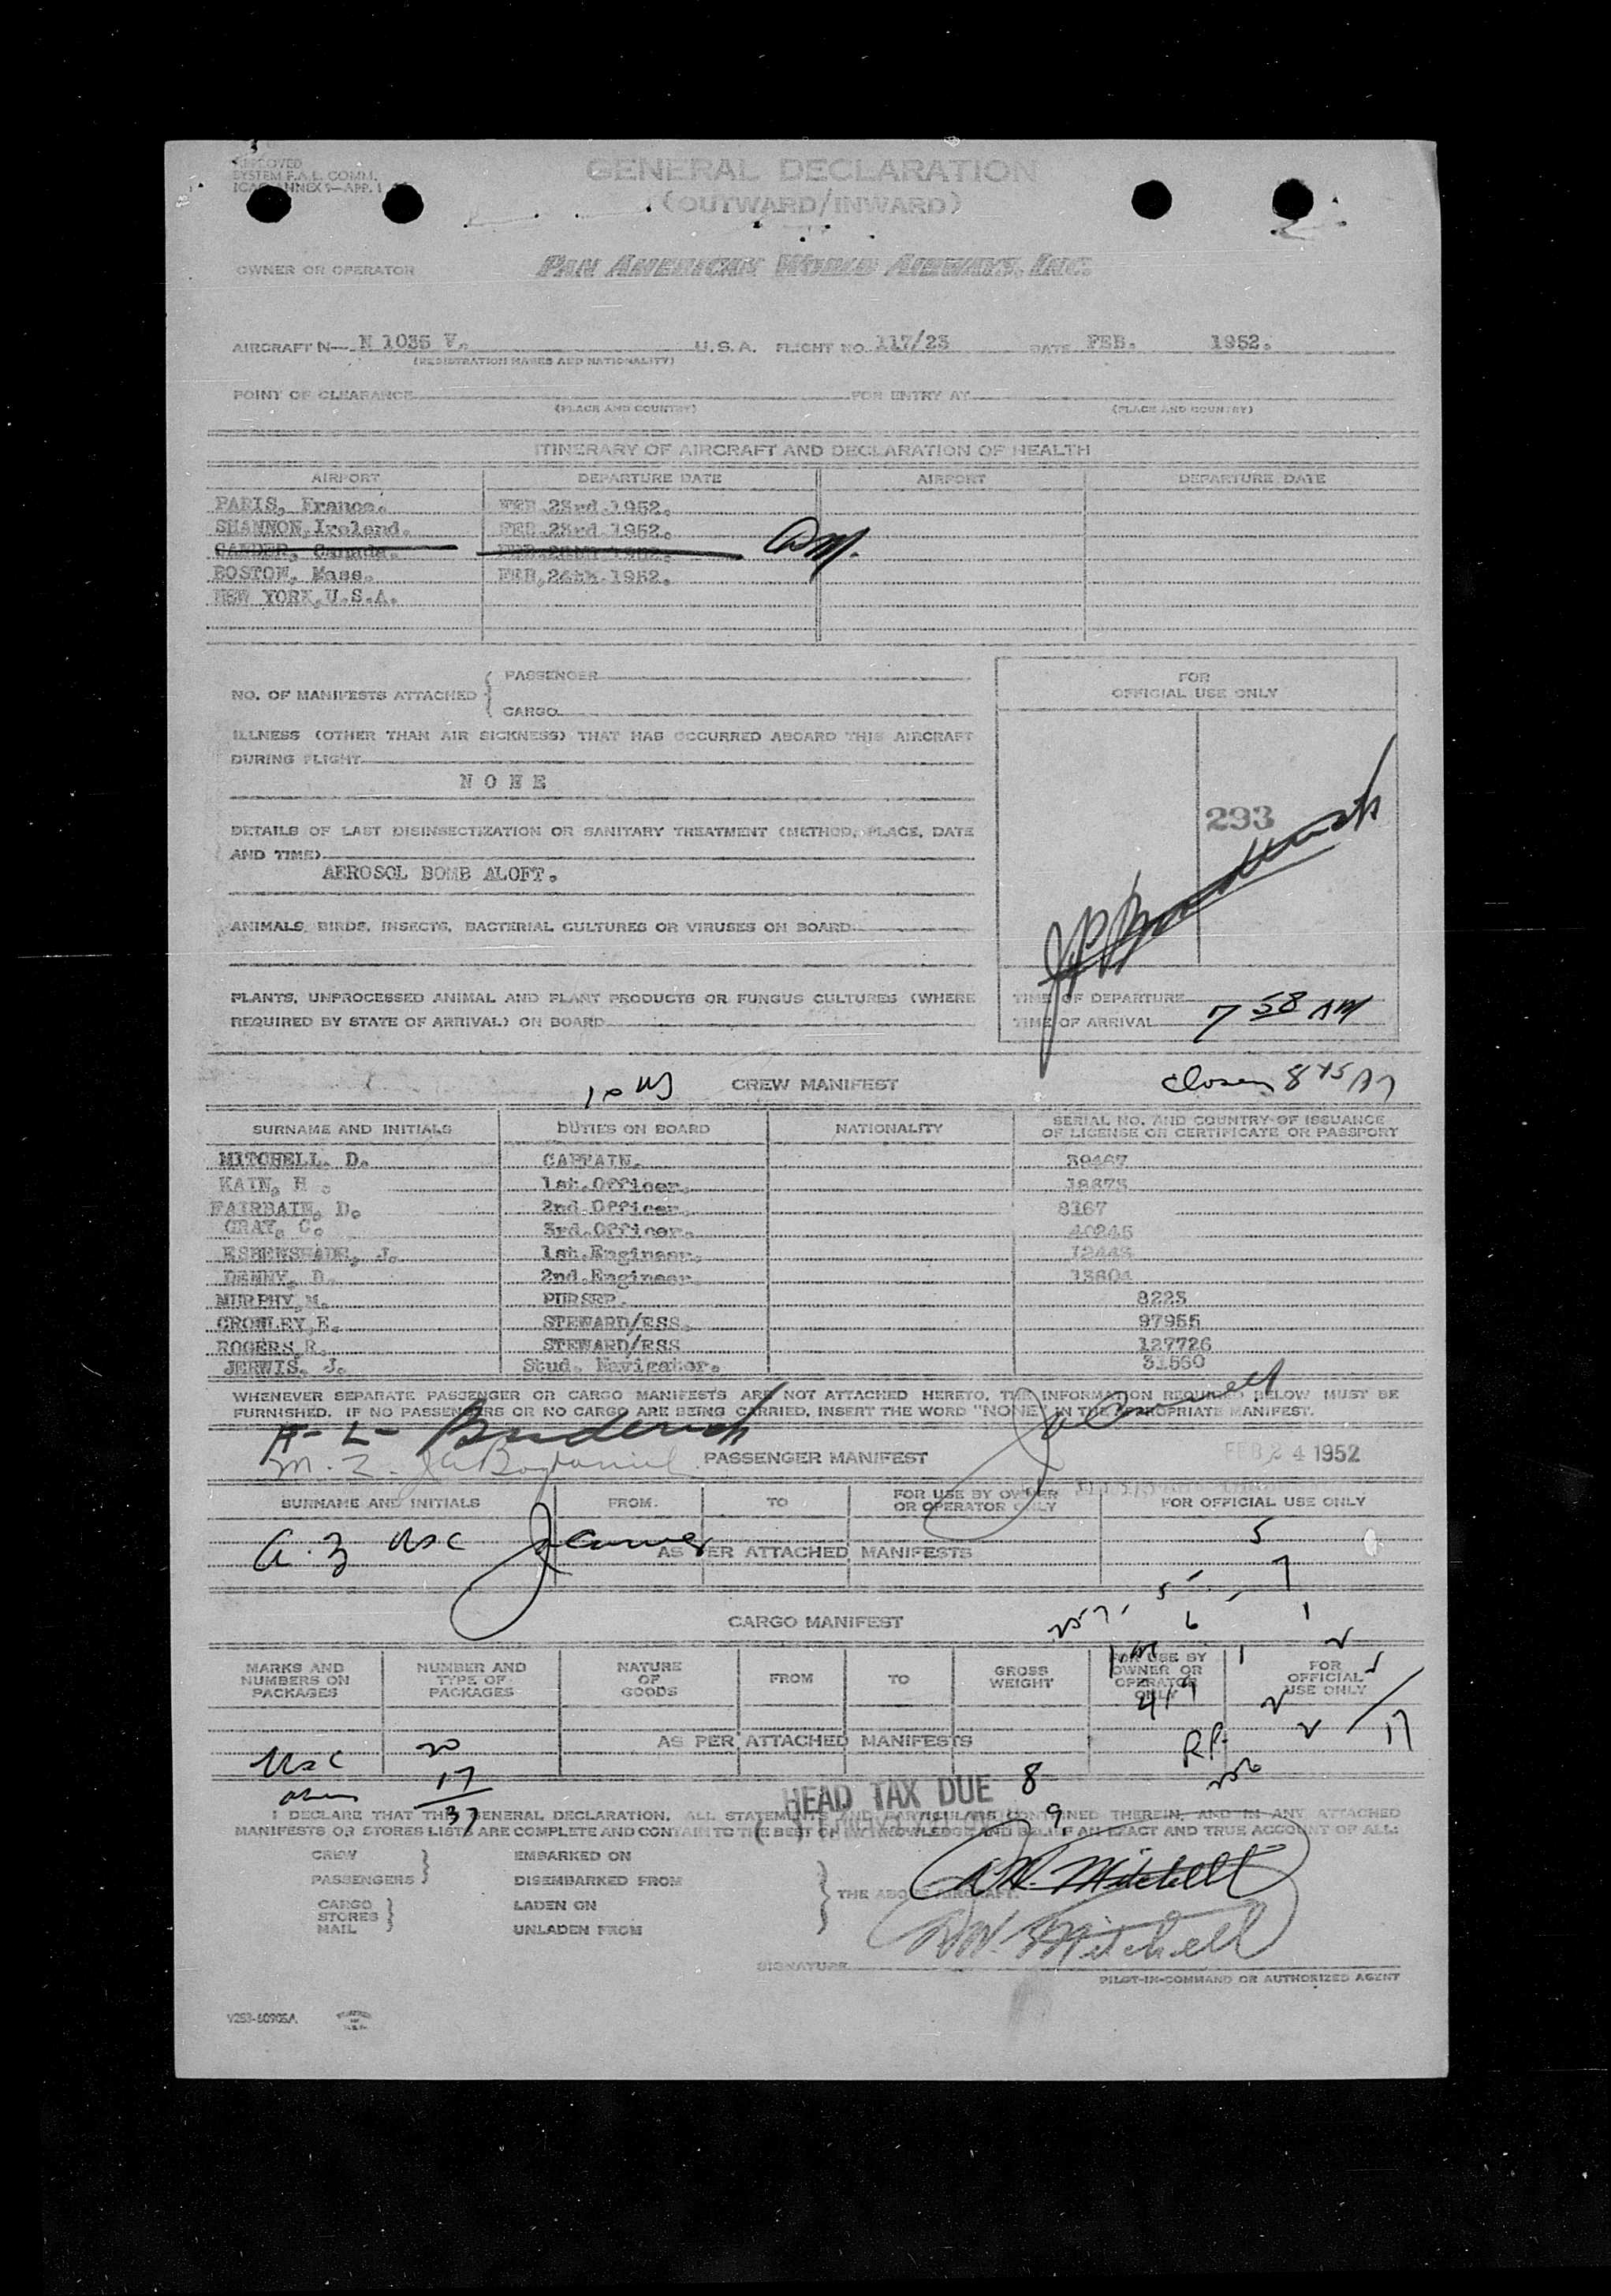 APPROVED
SYSTEM F.A.L. COMM.
ICAO ANNEX 9—APP. 1
GENERAL DECLARATION
(OUTWARD/INWARD)
OWNER OR OPERATOR PAN AMERICAN WORLD AIRWAYS, INC.
AIRCRAFT N— N 1035 V. U.S.A. FLIGHT NO. 117/23 DATE FEB. 1952.
(REGISTRATION MARKS AND NATIONALITY)
POINT OF CLEARANCE FOR ENTRY AT
(PLACE AND COUNTRY) (PLACE AND COUNTRY)
ITINERARY OF AIRCRAFT AND DECLARATION OF HEALTH
AIRPORT DEPARTURE DATE AIRPORT DEPARTURE DATE
PARIS, France. FEB.23rd.1952.
SHANNON,Ireland. FEB.23rd.1952.
GANDER, Canada.
BOSTON, Mass. FEB.24th.1952.
NEW YORK,U.S.A.
NO. OF MANIFESTS ATTACHED
PASSENGER
CARGO
FOR
OFFICIAL USE ONLY
ILLNESS (OTHER THAN AIR SICKNESS) THAT HAS OCCURRED ABOARD THIS AIRCRAFT
DURING FLIGHT
N O N E
293
DETAILS OF LAST DISINSECTIZATION OR SANITARY TREATMENT (METHOD, PLACE, DATE
AND TIME)
AEROSOL BOMB ALOFT.
ANIMALS, BIRDS, INSECTS, BACTERIAL CULTURES OR VIRUSES ON BOARD
PLANTS, UNPROCESSED ANIMAL AND PLANT PRODUCTS OR FUNGUS CULTURES (WHERE
REQUIRED BY STATE OF ARRIVAL) ON BOARD
TIME OF DEPARTURE
TIME OF ARRIVAL 7 58 AM
CREW MANIFEST
8 45
SURNAME AND INITIALS DUTIES ON BOARD NATIONALITY SERIAL NO. AND COUNTRY OF ISSUANCE
OF LICENSE OR CERTIFICATE OR PASSPORT
MITCHELL. D. CAPTAIN. 39467
KAIN, H . 1st.Officer. 18675
FAIRBAIN, D. 2nd.Officer. 8167
GRAY, C. 3rd.Officer. 40245
ESBENSHADE, J. 1st.Engineer. 12443
DENNY, D. 2nd.Engineer. 13604
MURPHY,M. PURSER. 8223
CROWLEY,E. STEWARD/ESS. 97955
ROGERS,R. STEWARD/ESS 127726
JERWIS. J. Stud. Navigator. 31560
WHENEVER SEPARATE PASSENGER OR CARGO MANIFESTS ARE NOT ATTACHED HERETO, THE INFORMATION REQUIRED BELOW MUST BE
FURNISHED. IF NO PASSENGERS OR NO CARGO ARE BEING CARRIED, INSERT THE WORD "NONE" IN THE APPROPRIATE MANIFEST.
PASSENGER MANIFEST
FEB 24 1952
SURNAME AND INITIALS FROM. TO FOR USE BY OWNER
OR OPERATOR ONLY FOR OFFICIAL USE ONLY
5
AS PER ATTACHED MANIFESTS
7
CARGO MANIFEST
MARKS AND
NUMBERS ON
PACKAGES
NUMBER AND
TYPE OF
PACKAGES
NATURE
OF
GOODS
FROM
TO
GROSS
WEIGHT
FOR USE BY
OWNER OR
OPERATOR
ONLY
FOR
OFFICIAL
USE ONLY
AS PER ATTACHED MANIFESTS
17
20
17
37
8
9
HEAD TAX DUE
I DECLARE THAT THIS GENERAL DECLARATION, ALL STATEMENTS AND PARTICULARS CONTAINED THEREIN, AND IN ANY ATTACHED
MANIFESTS OR STORES LISTS ARE COMPLETE AND CONTAIN TO THE BEST OF MY KNOWLEDGE AND BELIEF AN EXACT AND TRUE ACCOUNT OF ALL:
CREW
PASSENGERS
EMBARKED ON
DISEMBARKED FROM
CARGO
STORES
MAIL
LADEN ON
UNLADEN FROM
THE ABOVE AIRCRAFT.
D.W. Mitchell
D.W. Mitchell
SIGNATURE
PILOT-IN-COMMAND OR AUTHORIZED AGENT